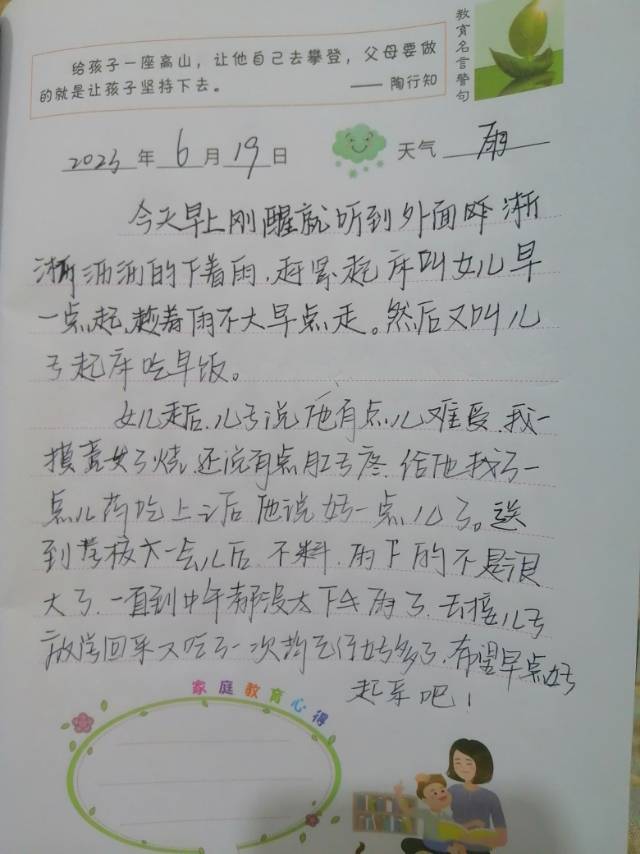 给孩子一座高山，让他自己去攀登，父母要做
的就是让孩子坚持下去。 —— 陶行知
教育名言警句
2023年6月19日 天气 雨
今天早上刚醒就听到外面哗淅
淅沥沥的下着雨，赶紧起床叫女儿早
一点起，趁着雨不大早点走。然后又叫儿
子起床吃早饭。
女儿走后，儿子说他有点儿难受，我一
摸着发烧，还说有点肚子疼，给他找了一
点儿药吃上之后他说好一点儿了。送
到学校大一会儿后，不料，雨下的不是很
大了，一直到中午都没太下雨了，去接儿子
放学回来又吃了一次药已经好多了，希望早点好
起来吧！
家庭教育心得